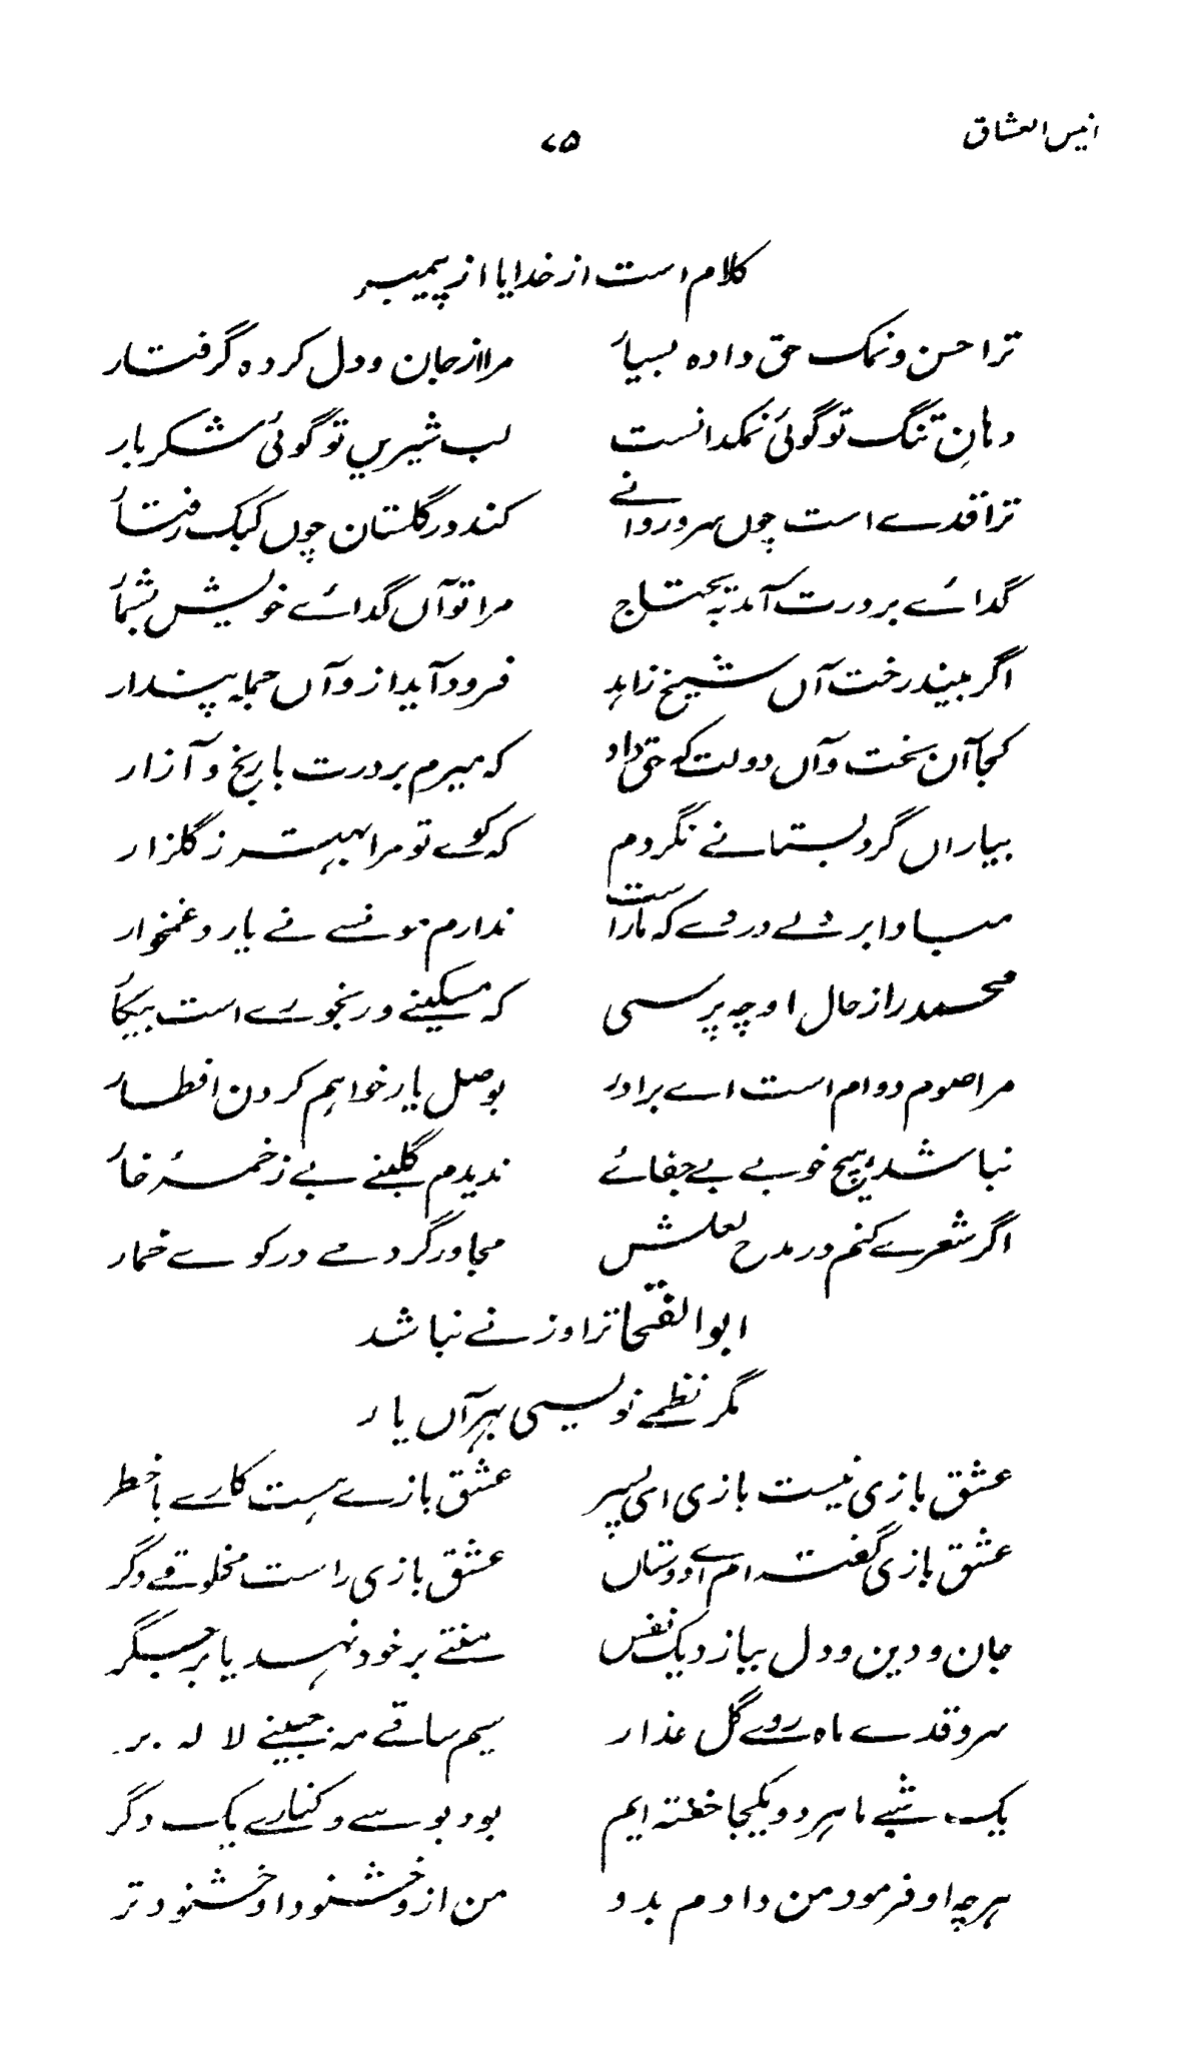 انیس العشاق
۷۵
کلام است از خدا یا از پیمبر
ترا حسن و نمک حق داده بسیار مرا از جان و دل کرده گرفتار
دہانِ تنگ تو گوئی نمکدانست لب شیریں تو گوئی شکر بار
ترا قدے است چوں سرو روانے کند در گلستان چوں کبک رفتار
گدائے بر درت آمد بہ محتاج مرا تو آں گدائے خویش بشمار
اگر بیند رخت آں شیخ زاہد فرود آید از و آں جملہ پندار
کجا آن بخت و آں دولت کہ حق داد کہ میرم بر درت با رنج و آزار
بیاراں گرد بستانے نگردم کہ کوے تو مرا بہتر ز گلزار
مبادا بر دلے دردے کہ ما راست ندارم مونسے نے یار و غمخوار
محمد را ز حال او چہ پرسی کہ مسکینے و رنجورے است بیکار
مرا صوم دوام است اے برادر بوصل یار خواہم کردن افطار
نباشد ہیچ خوبے بے جفائے ندیدم گلبنے بے زخمۂ خار
اگر شعرے کنم در مدح لعلش مجاور گردمے در کوے خمار
ابوالفتحا ترا وزنے نباشد
مگر نظمے نویسی بہر آں یار
عشق بازی نیست بازی ای پسر عشق بازے ہست کارے با خطر
عشق بازی گفتہ ام اے دوستاں عشق بازی راست مخلوقے دگر
جان و دین و دل ببازد یک نفس منتے بر خود نہد یا بر جگر
سرو قدے ماہ روے گل عذار سیم ساقے مہ جبینے لالہ بر
یک شبے ما ہر دو یکجا خفتہ ایم بود بوسے و کنارے یک دگر
ہر چہ او فرمود من دادم بدو من ازو خشنود او خشنود تر